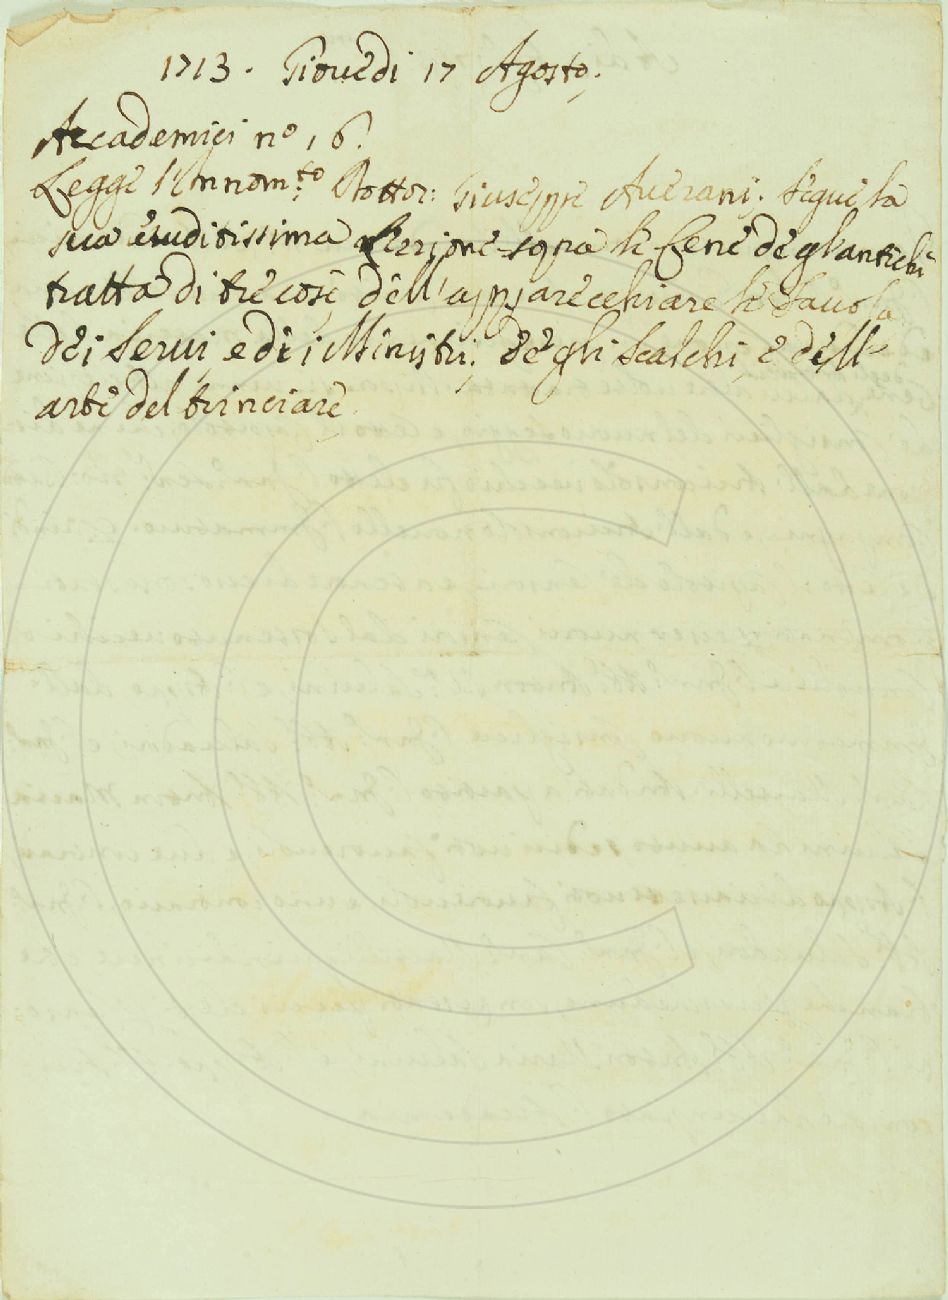 1713. Giovedi 17 Agosto.
Accademici n° 16.
Legge l'Innom.to Dottor: Giuseppe Averani. Segue la
sua eruditissima Lezione sopra le Cene degl'antichi
tratta di tre cose dell'apparecchiare le Tavola
dei Servi, e di i Ministri, degli Scalchi, e dell'
arte del trinciare